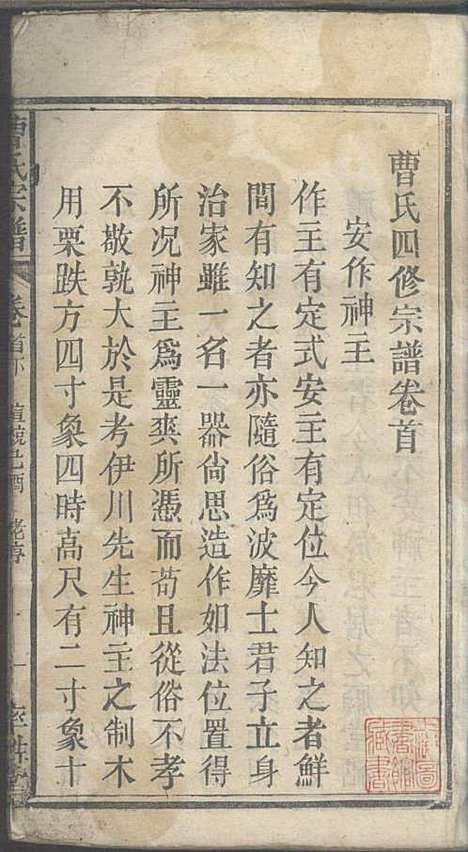 曹氏四修宗譜卷首
安作神主
作主有定式安主有定位今人知之者鮮
間有知之者亦隨俗爲波靡士君子立身
治家雖一名一器尙思造作如法位置得
所况神主爲靈爽所憑而苟且從俗不孝
不敬孰大於是考伊川先生神主之制木
用栗趺方四寸象四時高尺有二寸象十
曹氏宗譜
卷首